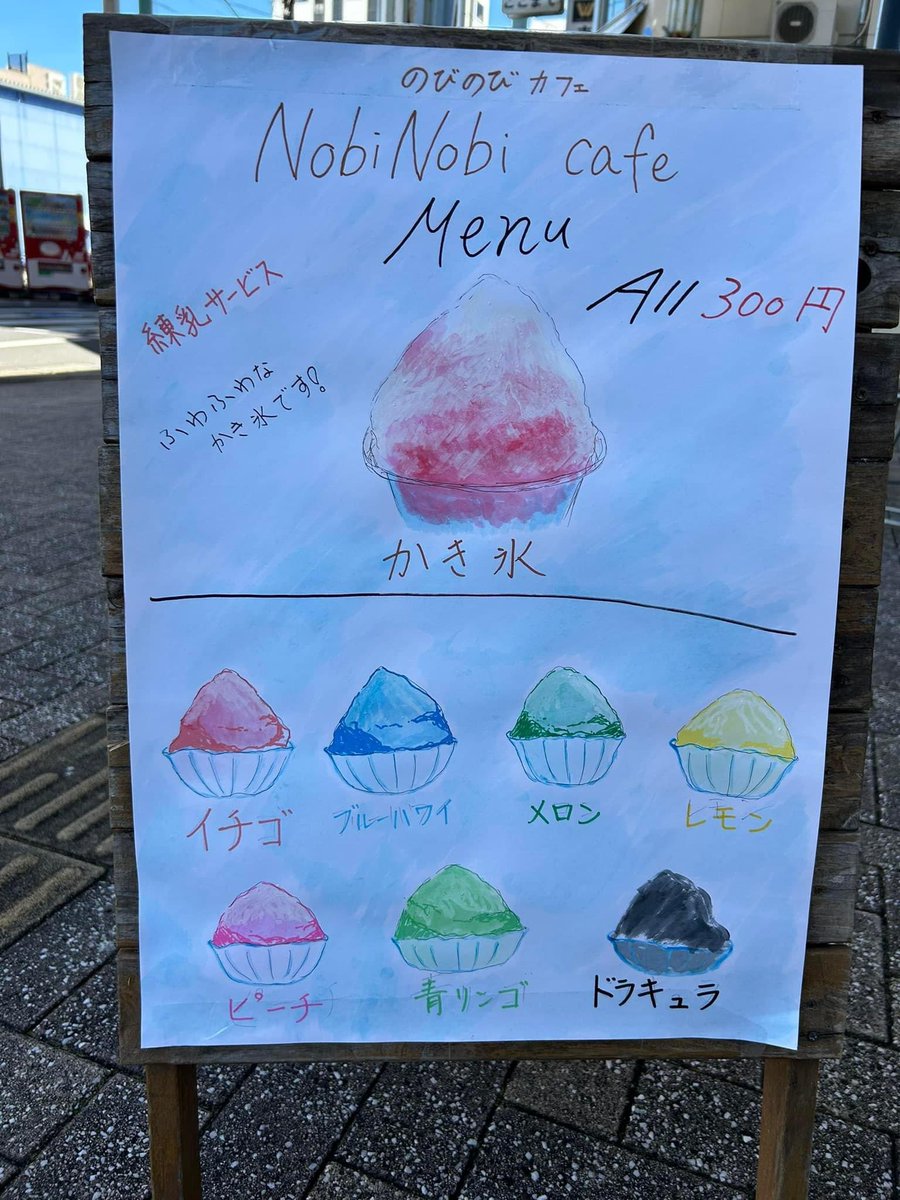 のびのびカフェ
NobiNobi cafe
Menu
All 300円
練乳サービス
ふわふわな
かき氷です!
かき氷
イチゴ
ブルーハワイ
メロン
レモン
ピーチ
青リンゴ
ドラキュラ